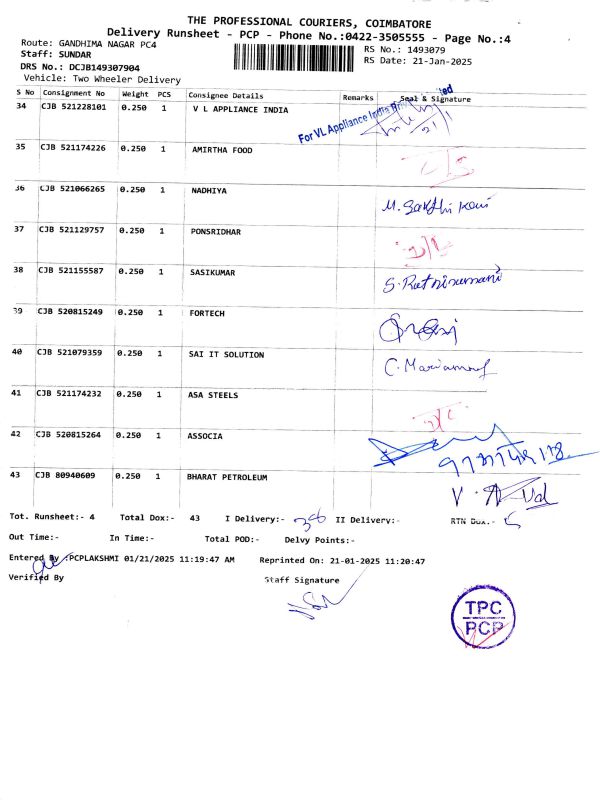 THE PROFESSIONAL COURIERS, COIMBATORE
Delivery Runsheet - PCP - Phone No.:0422-3505555 - Page No.:4
Route: GANDHIMA NAGAR PC4 RS No.: 1493079
Staff: SUNDAR RS Date: 21-Jan-2025
DRS No.: DCJB149307904
Vehicle: Two Wheeler Delivery
S No Consignment No Weight PCS Consignee Details Remarks Seal & Signature
34 CJB 521228101 0.250 1 V L APPLIANCE INDIA For VL Appliance India 21/1
35 CJB 521174226 0.250 1 AMIRTHA FOOD
36 CJB 521066265 0.250 1 NADHIYA M. Sakthi Kani
37 CJB 521129757 0.250 1 PONSRIDHAR
38 CJB 521155587 0.250 1 SASIKUMAR S. Rathinamani
39 CJB 520815249 0.250 1 FORTECH
40 CJB 521079359 0.250 1 SAI IT SOLUTION
41 CJB 521174232 0.250 1 ASA STEELS
42 CJB 520815264 0.250 1 ASSOCIA
43 CJB 80940609 0.250 1 BHARAT PETROLEUM
Tot. Runsheet:- 4 Total Dox:- 43 I Delivery:- 38 II Delivery:- RTN Dox:- 5
Out Time:- In Time:- Total POD:- Delvy Points:-
Entered By :PCPLAKSHMI 01/21/2025 11:19:47 AM Reprinted On: 21-01-2025 11:20:47
Verified By Staff Signature
TPC
PCP